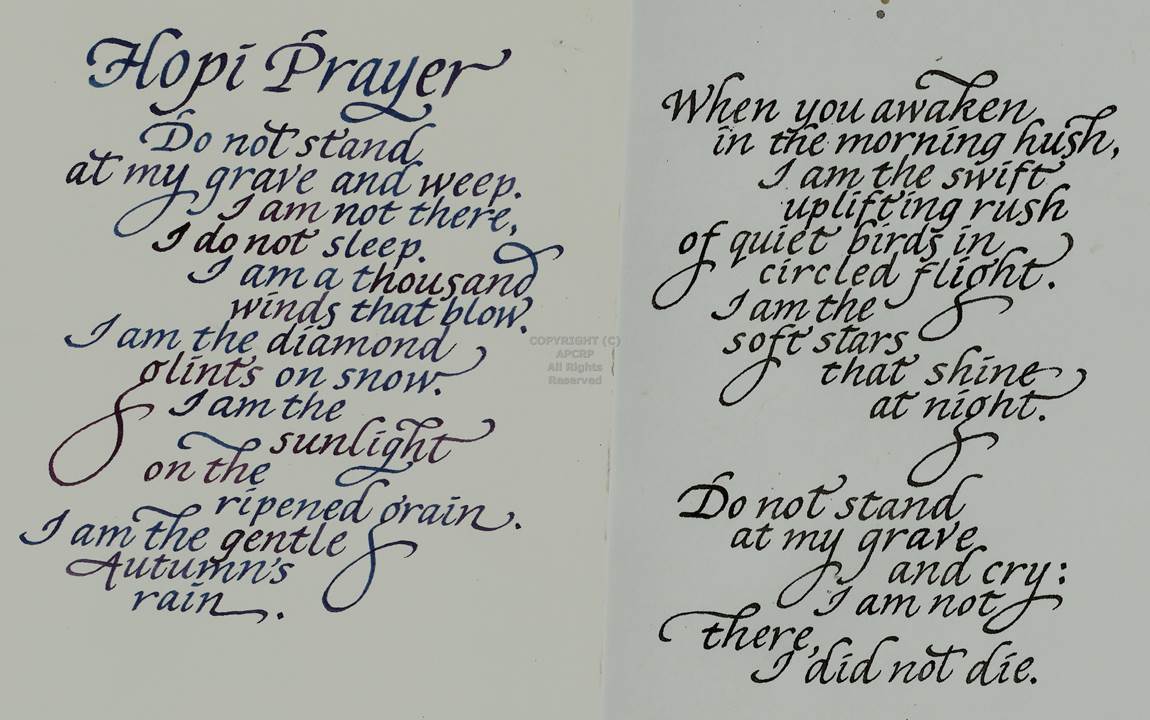 Hopi Prayer
Do not stand
at my grave and weep.
I am not there,
I do not sleep.
I am a thousand
winds that blow.
I am the diamond
glints on snow.
I am the
sunlight
on the
ripened grain.
I am the gentle
Autumn's
rain.
COPYRIGHT (C)
APCRP
All Rights
Reserved
When you awaken
in the morning hush,
I am the swift
uplifting rush
of quiet birds in
circled flight.
I am the
soft stars
that shine
at night.
Do not stand
at my grave
and cry:
I am not
there,
I did not die.